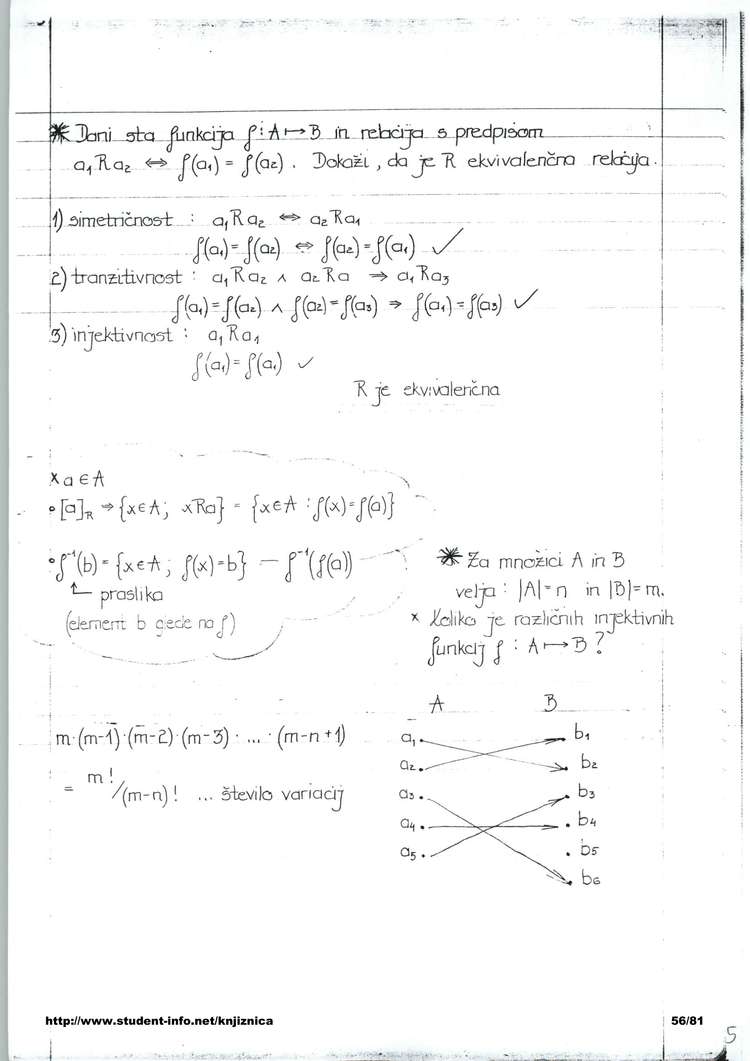 * Dani sta funkcija f : A ↦ B in relacija s predpisom
a₁Ra₂ ⇔ f(a₁) = f(a₂). Dokaži, da je R ekvivalenčna relacija.
1) simetričnost : a₁Ra₂ ⇔ a₂Ra₁
f(a₁) = f(a₂) ⇔ f(a₂) = f(a₁) ✓
2) tranzitivnost : a₁Ra₂ ∧ a₂Ra ⇒ a₁Ra₃
f(a₁) = f(a₂) ∧ f(a₂) = f(a₃) ⇒ f(a₁) = f(a₃) ✓
3) injektivnost : a₁Ra₁
f(a₁) = f(a₁) ✓
R je ekvivalenčna
x a ∈ A
• [a]ᵣ ⇒ {x∈A; xRa} = {x∈A : f(x) = f(a)}
• f⁻¹(b) = {x∈A; f(x) = b} — f⁻¹(f(a))
praslika
(element b gede na f)
* Za množici A in B
velja : |A| = n in |B| = m.
x Koliko je različnih injektivnih
funkcij f : A ↦ B ?
m·(m-1)·(m-2)·(m-3)· ... ·(m-n+1)
= m!/(m-n)! ... število variacij
A B
a₁ b₁
a₂ b₂
a₃ b₃
a₄ b₄
a₅ b₅
b₆
http://www.student-info.net/knjiznica 56/81
5